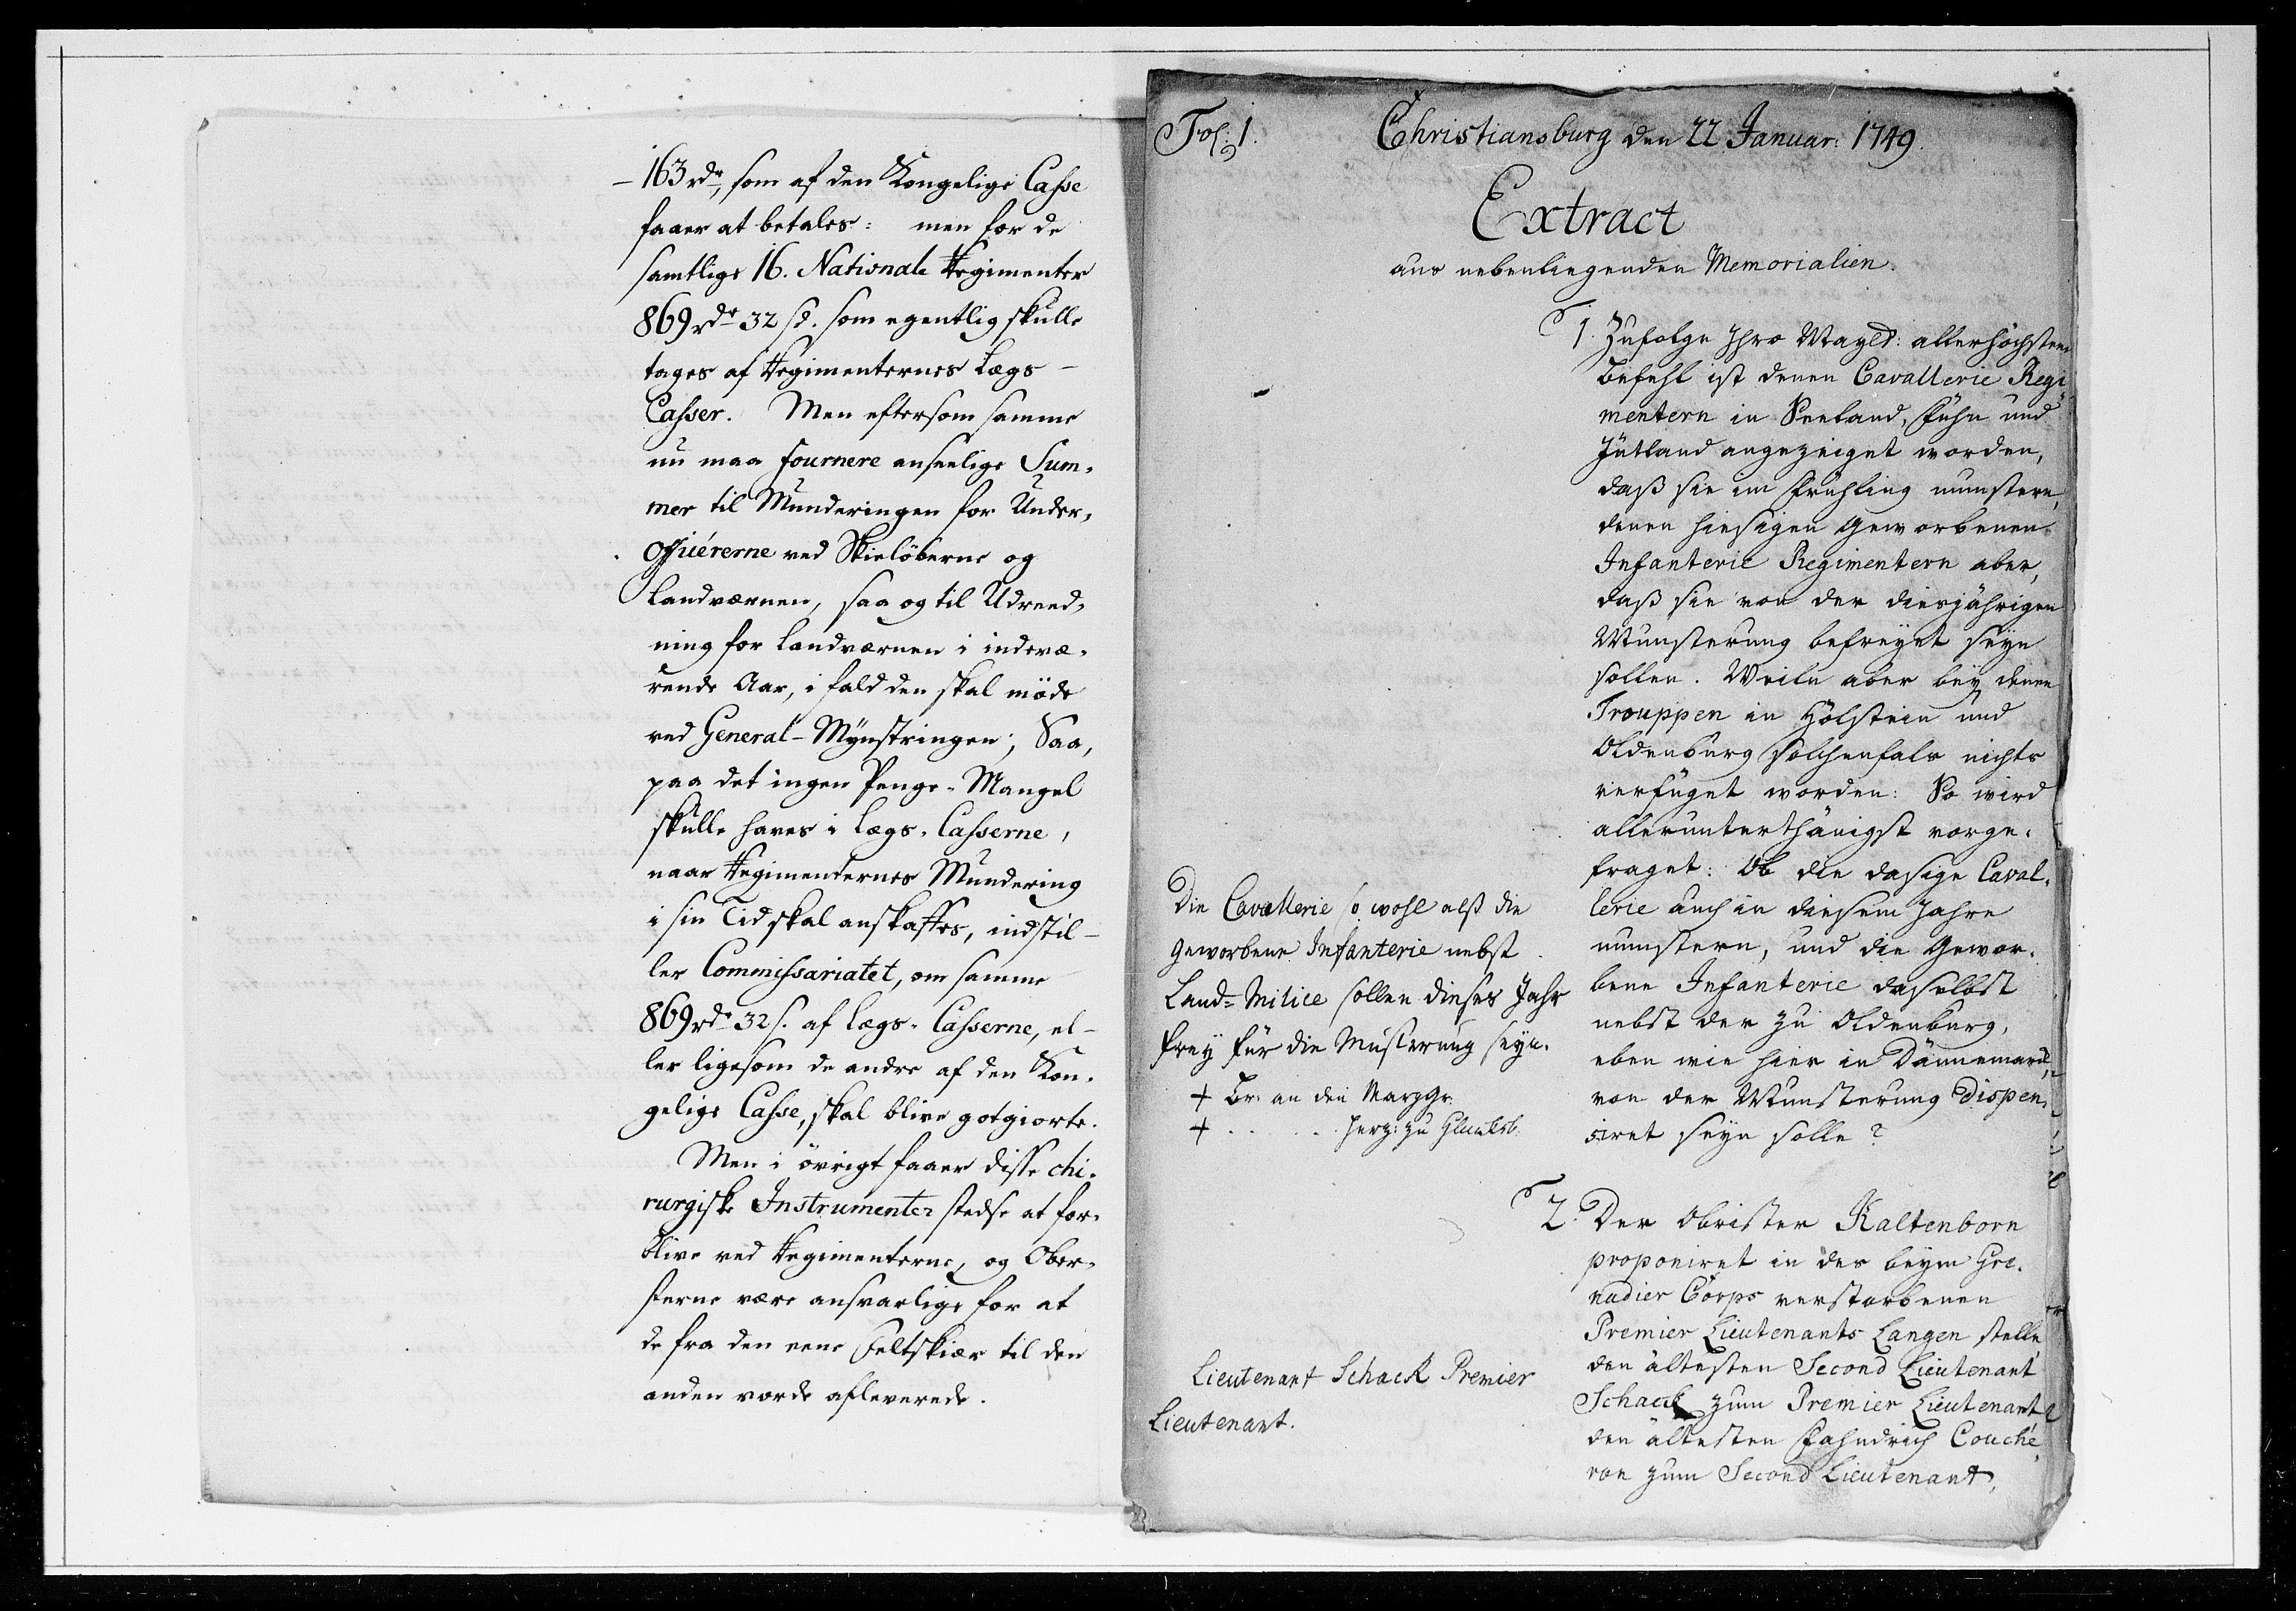 – 163 rdr, som af den Kongelige Casse
faaer at betales: men for de
samtlige 16. Nationale Regimenter
869 rdr 32 sz. som egentlig skulle
tages af Regimenternes Lægs –
Casser. Men eftersom samme
nu maa fournere anseelige Sum-
mer til Munderingen for Under-
Officérerne ved Skielöberne og
Landværnen, saa og til Udreed-
ning for Landværnen i indevæ-
rende Aar, i fald den skal möde
ved General-Mynstringen; Saa,
paa det ingen Penge-Mangel
skulle haves i Lægs-Casserne,
naar Regimenternes Mundering
i sin Tid skal anskaffes, indstil-
ler Commissariatet, om samme
869 rdr 32 s. af Lægs-Casserne, el-
ler ligesom de andre af den Kon-
gelige Casse, skal blive gotgiorte.
Men i övrigt faaer disse chi-
rurgiske Instrumenter stedse at for-
blive ved Regimenterne, og Ober-
sterne være ansvarlige for at
de fra den eene Feltskiær til den
anden vorde afleverede.
Fol: 1.
Christiansburg den 22 Januar: 1749.
Extract
aus nebenliegenden Memorialien.
1. Zufolge Ihro Mayst: allerhöchsten
Befehl ist denen Cavallerie Regi-
mentern in Seeland, Fühn und
Jütland angezeiget worden,
daß sie im Frühling munstern,
denen hiesigen Geworbenen
Infanterie Regimentern aber,
daß sie von der diesjährigen
Munsterung befreyet seyn
sollen. Weiln aber bey denen
Trouppen in Holstein und
Oldenburg solchenfals nichts
verfüget worden: So wird
allerunterthänigst vorge-
fraget: Ob die dasige Caval-
lerie auch in diesem Jahre
munstern, und die Gewor-
bene Infanterie daselbst
nebst der zu Oldenburg,
eben wie hier in Dännemarck,
von der Munsterung dispen-
siret seyn solle?
Die Cavallerie so wohl alß die
geworbene Infanterie nebst
Land-Milice sollen dieses Jahr
frey für die Musterung seyn.
+ Br: an den Marggr:
+ . . . . . Herz: zu Glucksb.
2. Der Obrister Kaltenborn
proponiret in des beym Gre-
nadier Corps verstorbenen
Premier Lieutenants Langen stelle
den ältesten Second Lieutenant
Schack zum Premier Lieutenant,
den ältesten Fähndrich Couché-
ron zum Second Lieutenant,
Lieutenant Schack Premier
Lieutenant.